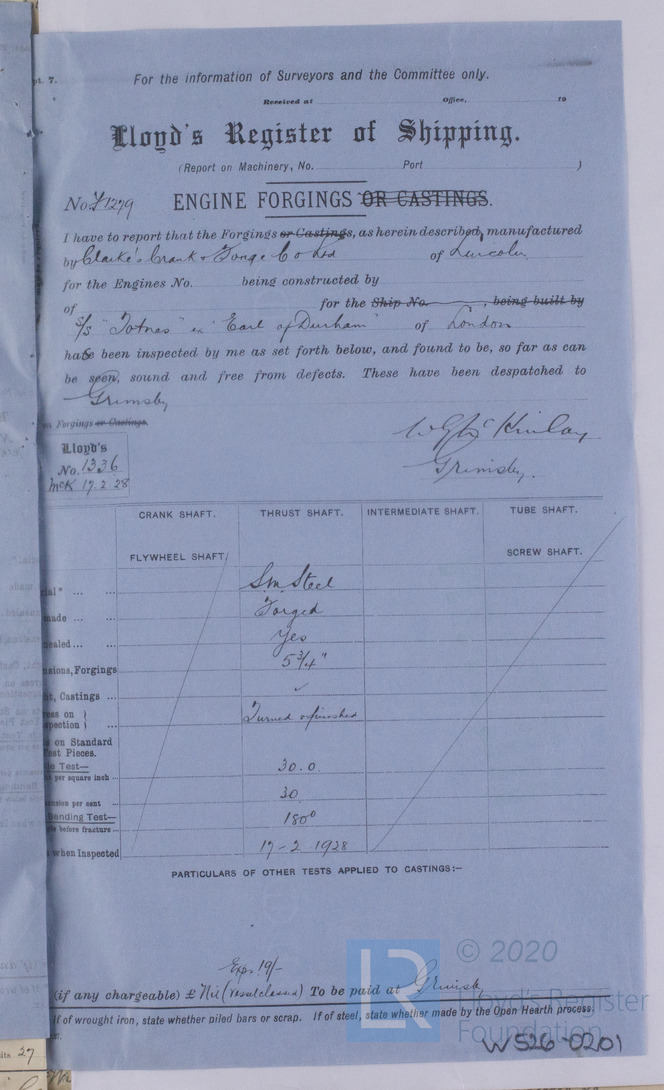 pt. 7.
For the information of Surveyors and the Committee only.
Received at Office, 19
Lloyd's Register of Shipping.
(Report on Machinery, No. Port )
No £1279 ENGINE FORGINGS OR CASTINGS.
I have to report that the Forgings or Castings, as herein described, manufactured
by Clarke's Crank & Forge Co Ltd of Lincoln
for the Engines No. being constructed by
of for the Ship No. , being built by
S/S "Totnes" ex "Earl of Durham" of London
have been inspected by me as set forth below, and found to be, so far as can
be seen, sound and free from defects. These have been despatched to
Grimsby
Forgings or Castings.
Lloyd's
No. 1336
McK 17.2.28
W G McKinlay
Grimsby.
CRANK SHAFT. THRUST SHAFT. INTERMEDIATE SHAFT. TUBE SHAFT.
FLYWHEEL SHAFT SCREW SHAFT.
ial* ... ... S.M. Steel
made ... ... Forged
nealed ... ... Yes
nsions, Forgings 5 3/4"
ht, Castings ... ✓
ress on
spection } ... Turned & finished
s on Standard
Test Pieces.
le Test—
per square inch ... 30.0
ension per cent ... 30
Bending Test—
gle before fracture ... 180°
when Inspected 17-2 1928
PARTICULARS OF OTHER TESTS APPLIED TO CASTINGS:—
Exps 19/-
(if any chargeable) £ Nil (vessel classed) To be paid at Grimsby
If of wrought iron, state whether piled bars or scrap. If of steel, state whether made by the Open Hearth process,
© 2020
LR
Lloyd's Register
Foundation
W526-0201
its 27